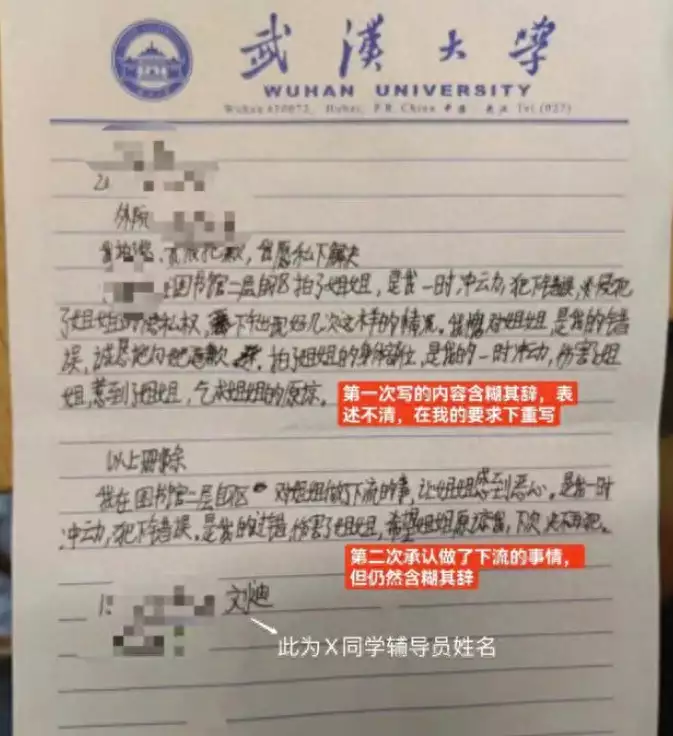 武漢大學
WUHAN UNIVERSITY
Wuhan 430072, Hubei, P.R. China 中国 武汉 Tel.(027)
外院
我愿私下解决
图书馆二层自区拍了姐姐,是我一时冲动,犯下错误,侵犯
了姐姐的隐私权,出现好几次这样的情况。我愧对姐姐,是我的错
误,诚恳地向她道歉,拍了姐姐的身体部位,是我的一时冲动,伤害了姐
姐,惹到了姐姐,乞求姐姐的原谅。
第一次写的内容含糊其辞,表
述不清,在我的要求下重写
以上删除
我在图书馆二层自区对姐姐做了下流的事,让姐姐感到恶心。是我一时
冲动,犯下错误。是我的过错,伤害了姐姐,希望姐姐原谅我,下次决不再犯。
第二次承认做了下流的事情,
但仍然含糊其辞
刘迪
此为X同学辅导员姓名